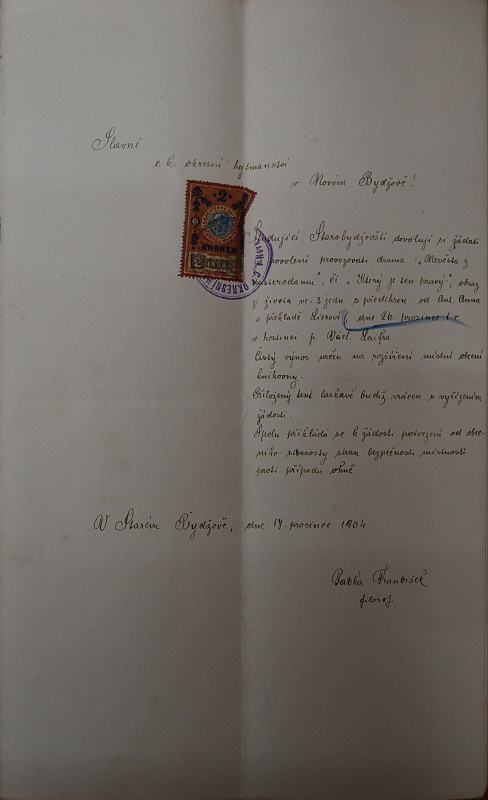 Slavné
c. k. okresní hejtmanství
v Novém Bydžově!
2
KRONEN
Studující Starobydžovští dovolují si žádati
povolení provozovati drama „Nevěsta z
Amsterodamu", či „Který je ten pravý", obraz
z života ve 3 jedn. s předehrou od Ant. Anna
v překladě dne 26. prosince t. r.
v hostinci p. Václ.
Čistý výnos určen na rozšíření místní obecní
knihovny.
Přiložený text laskavě budiž vrácen s vyřízením
žádosti.
Spolu přikládá se k žádosti potvrzení od obec-
ního starosty stran bezpečnosti místnosti
proti případu ohně.
V Starém Bydžově, dne 17. prosince 1904
František
filosof